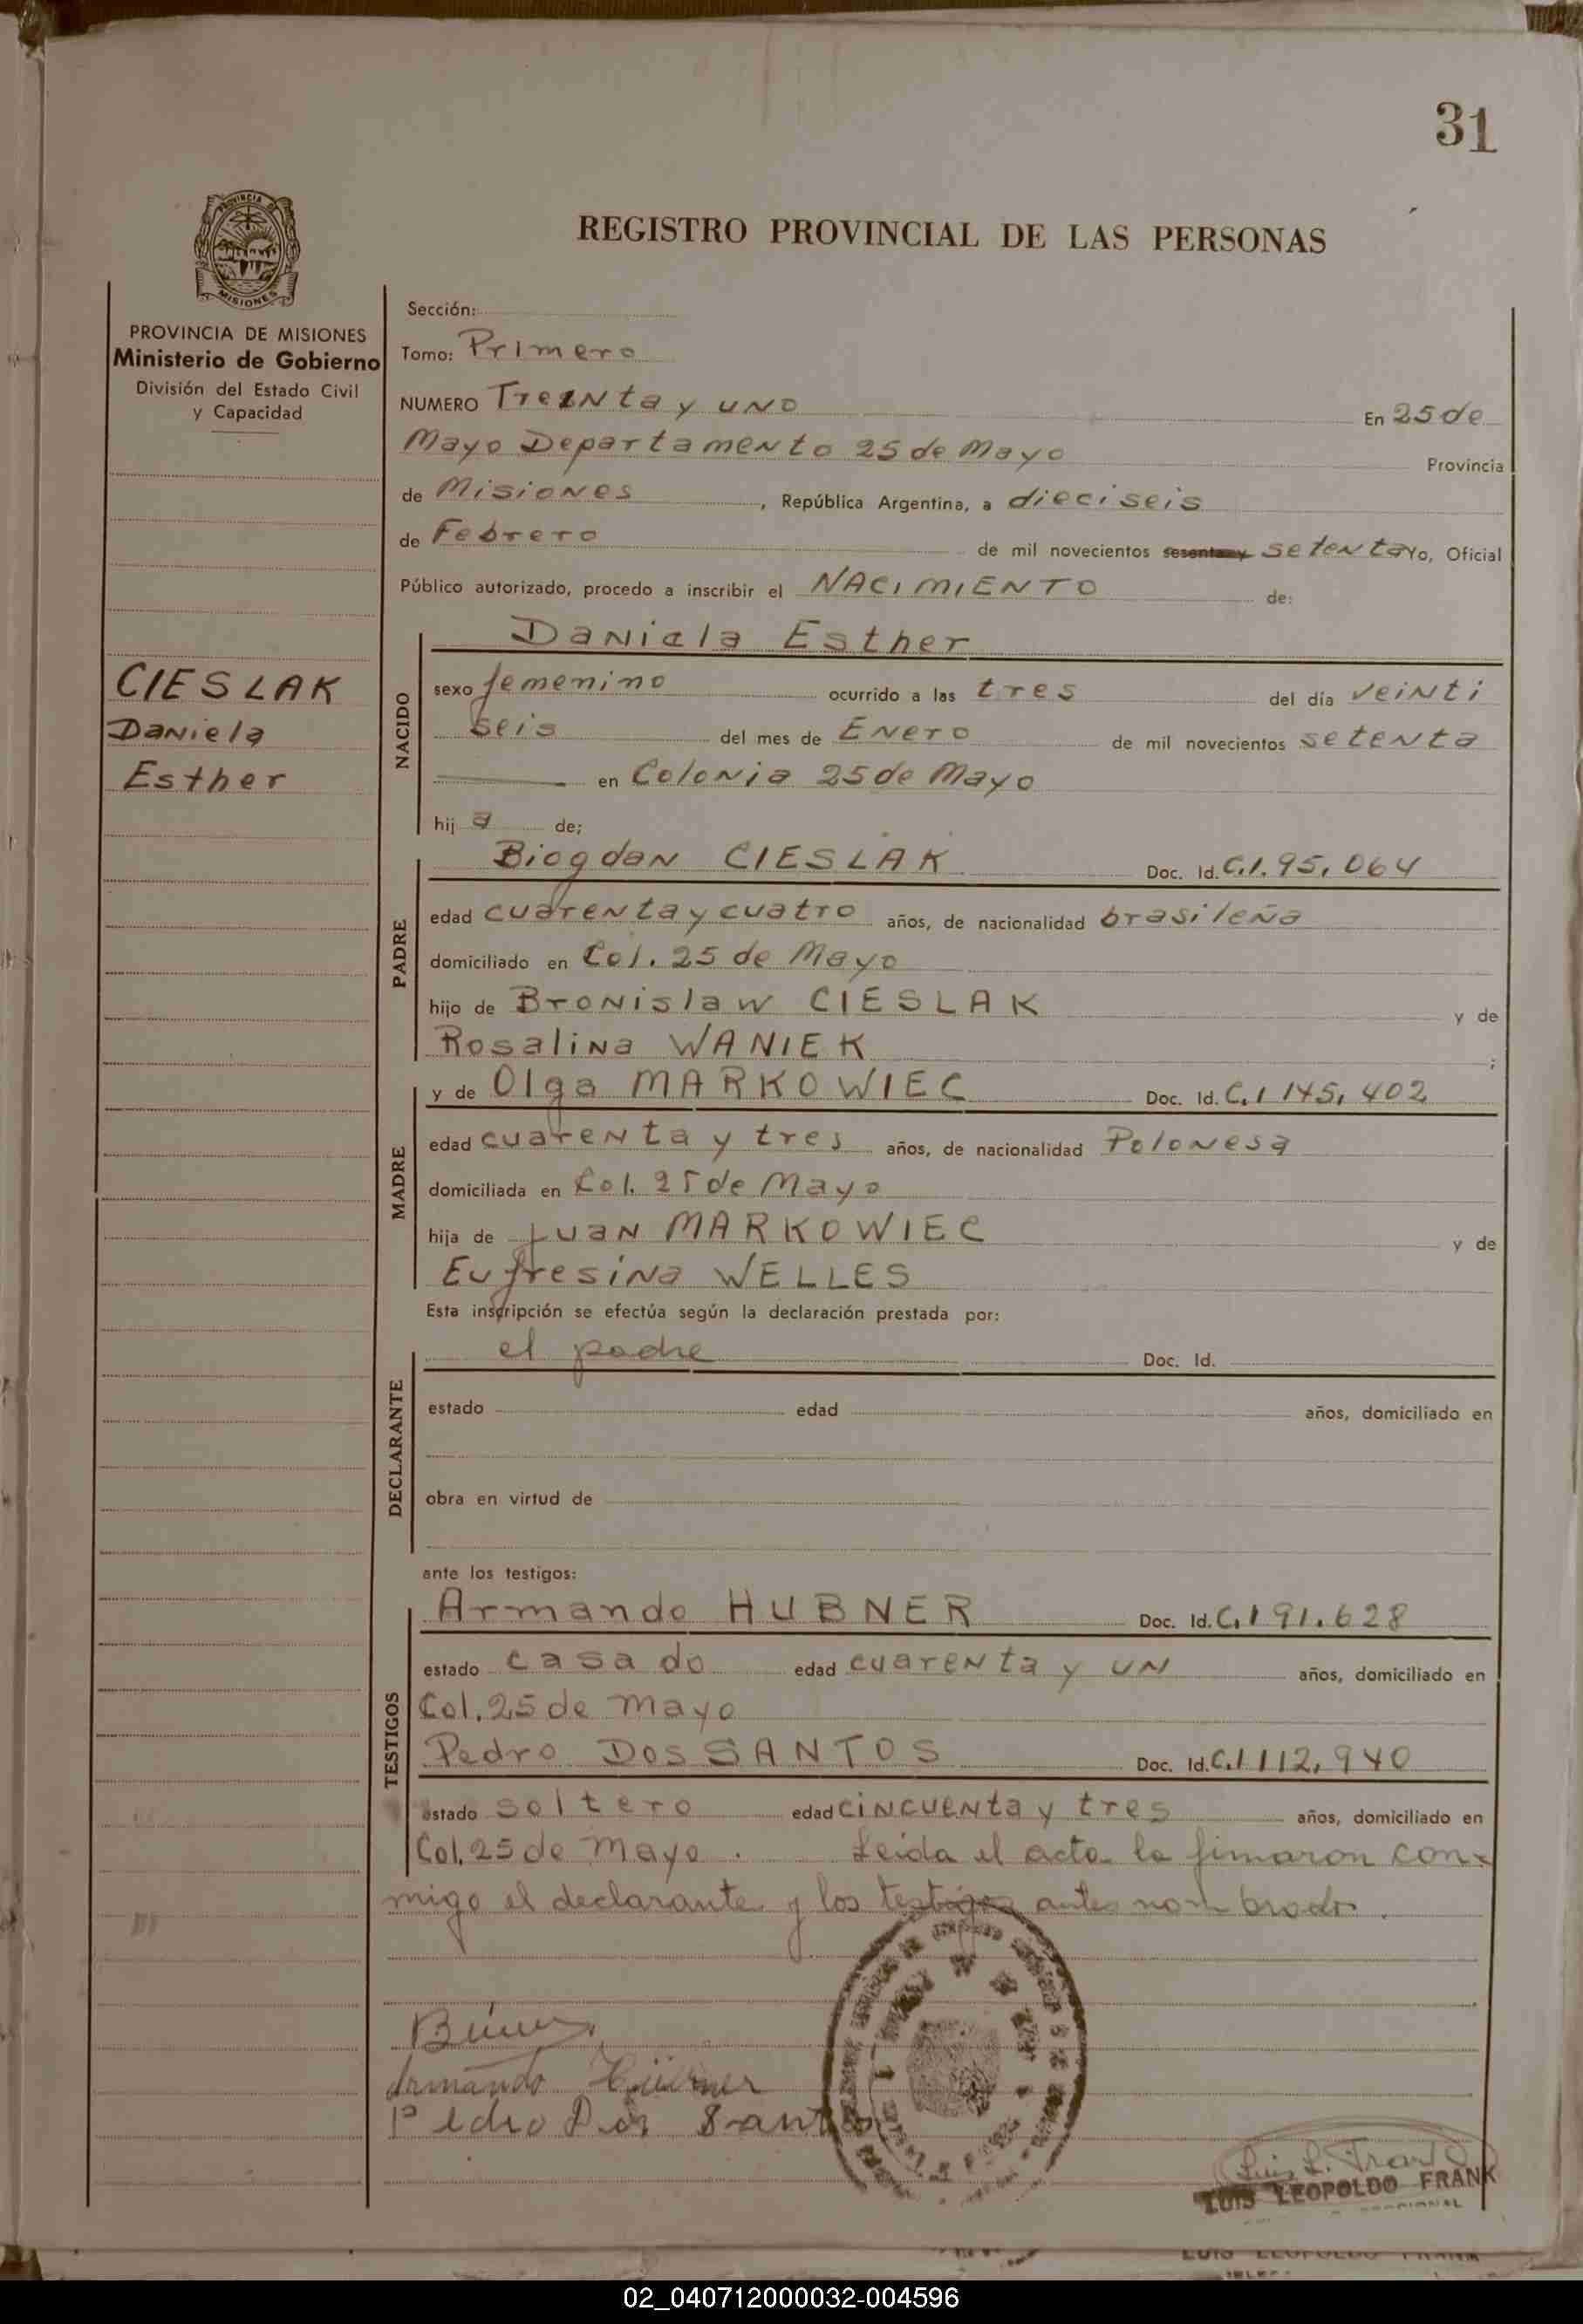 31
REGISTRO PROVINCIAL DE LAS PERSONAS
PROVINCIA DE MISIONES
PROVINCIA DE MISIONES
Ministerio de Gobierno
División del Estado Civil
y Capacidad
CIESLAK
Daniela
Esther
Sección:
Tomo: Primero
NUMERO Treinta y uno En 25 de
Mayo Departamento 25 de Mayo Provincia
de Misiones, República Argentina, a dieciseis
de Febrero de mil novecientos sesenta y setenta Yo, Oficial
Público autorizado, procedo a inscribir el NACIMIENTO de:
Daniela Esther
NACIDO
sexo femenino ocurrido a las tres del día veinti
seis del mes de Enero de mil novecientos setenta
en Colonia 25 de Mayo
hija de;
PADRE
Biogdan CIESLAK Doc. Id. C.I. 95,064
edad cuarenta y cuatro años, de nacionalidad brasileña
domiciliado en Col. 25 de Mayo
hijo de Bronislaw CIESLAK y de
Rosalina WANIEK ;
MADRE
y de Olga MARKOWIEC Doc. Id. C.I 145,402
edad cuarenta y tres años, de nacionalidad Polonesa
domiciliada en Col. 25 de Mayo
hija de Juan MARKOWIEC y de
Eufresina WELLES
Esta inscripción se efectúa según la declaración prestada por:
DECLARANTE
el padre Doc. Id.
estado edad años, domiciliado en
obra en virtud de
ante los testigos:
TESTIGOS
Armando HUBNER Doc. Id. C.I 91.628
estado casado edad cuarenta y un años, domiciliado en
Col. 25 de Mayo
Pedro DOS SANTOS Doc. Id. C.I 112,940
estado soltero edad cincuenta y tres años, domiciliado en
Col. 25 de Mayo. Leida el acta la fimaron con-
migo el declarante y los testigos antes nombrado.
Armando Hübner
Pedro Dos Santos
Luis L. Frank
LUIS LEOPOLDO FRANK
LUIS LEOPOLDO FRANK
02_040712000032-004596